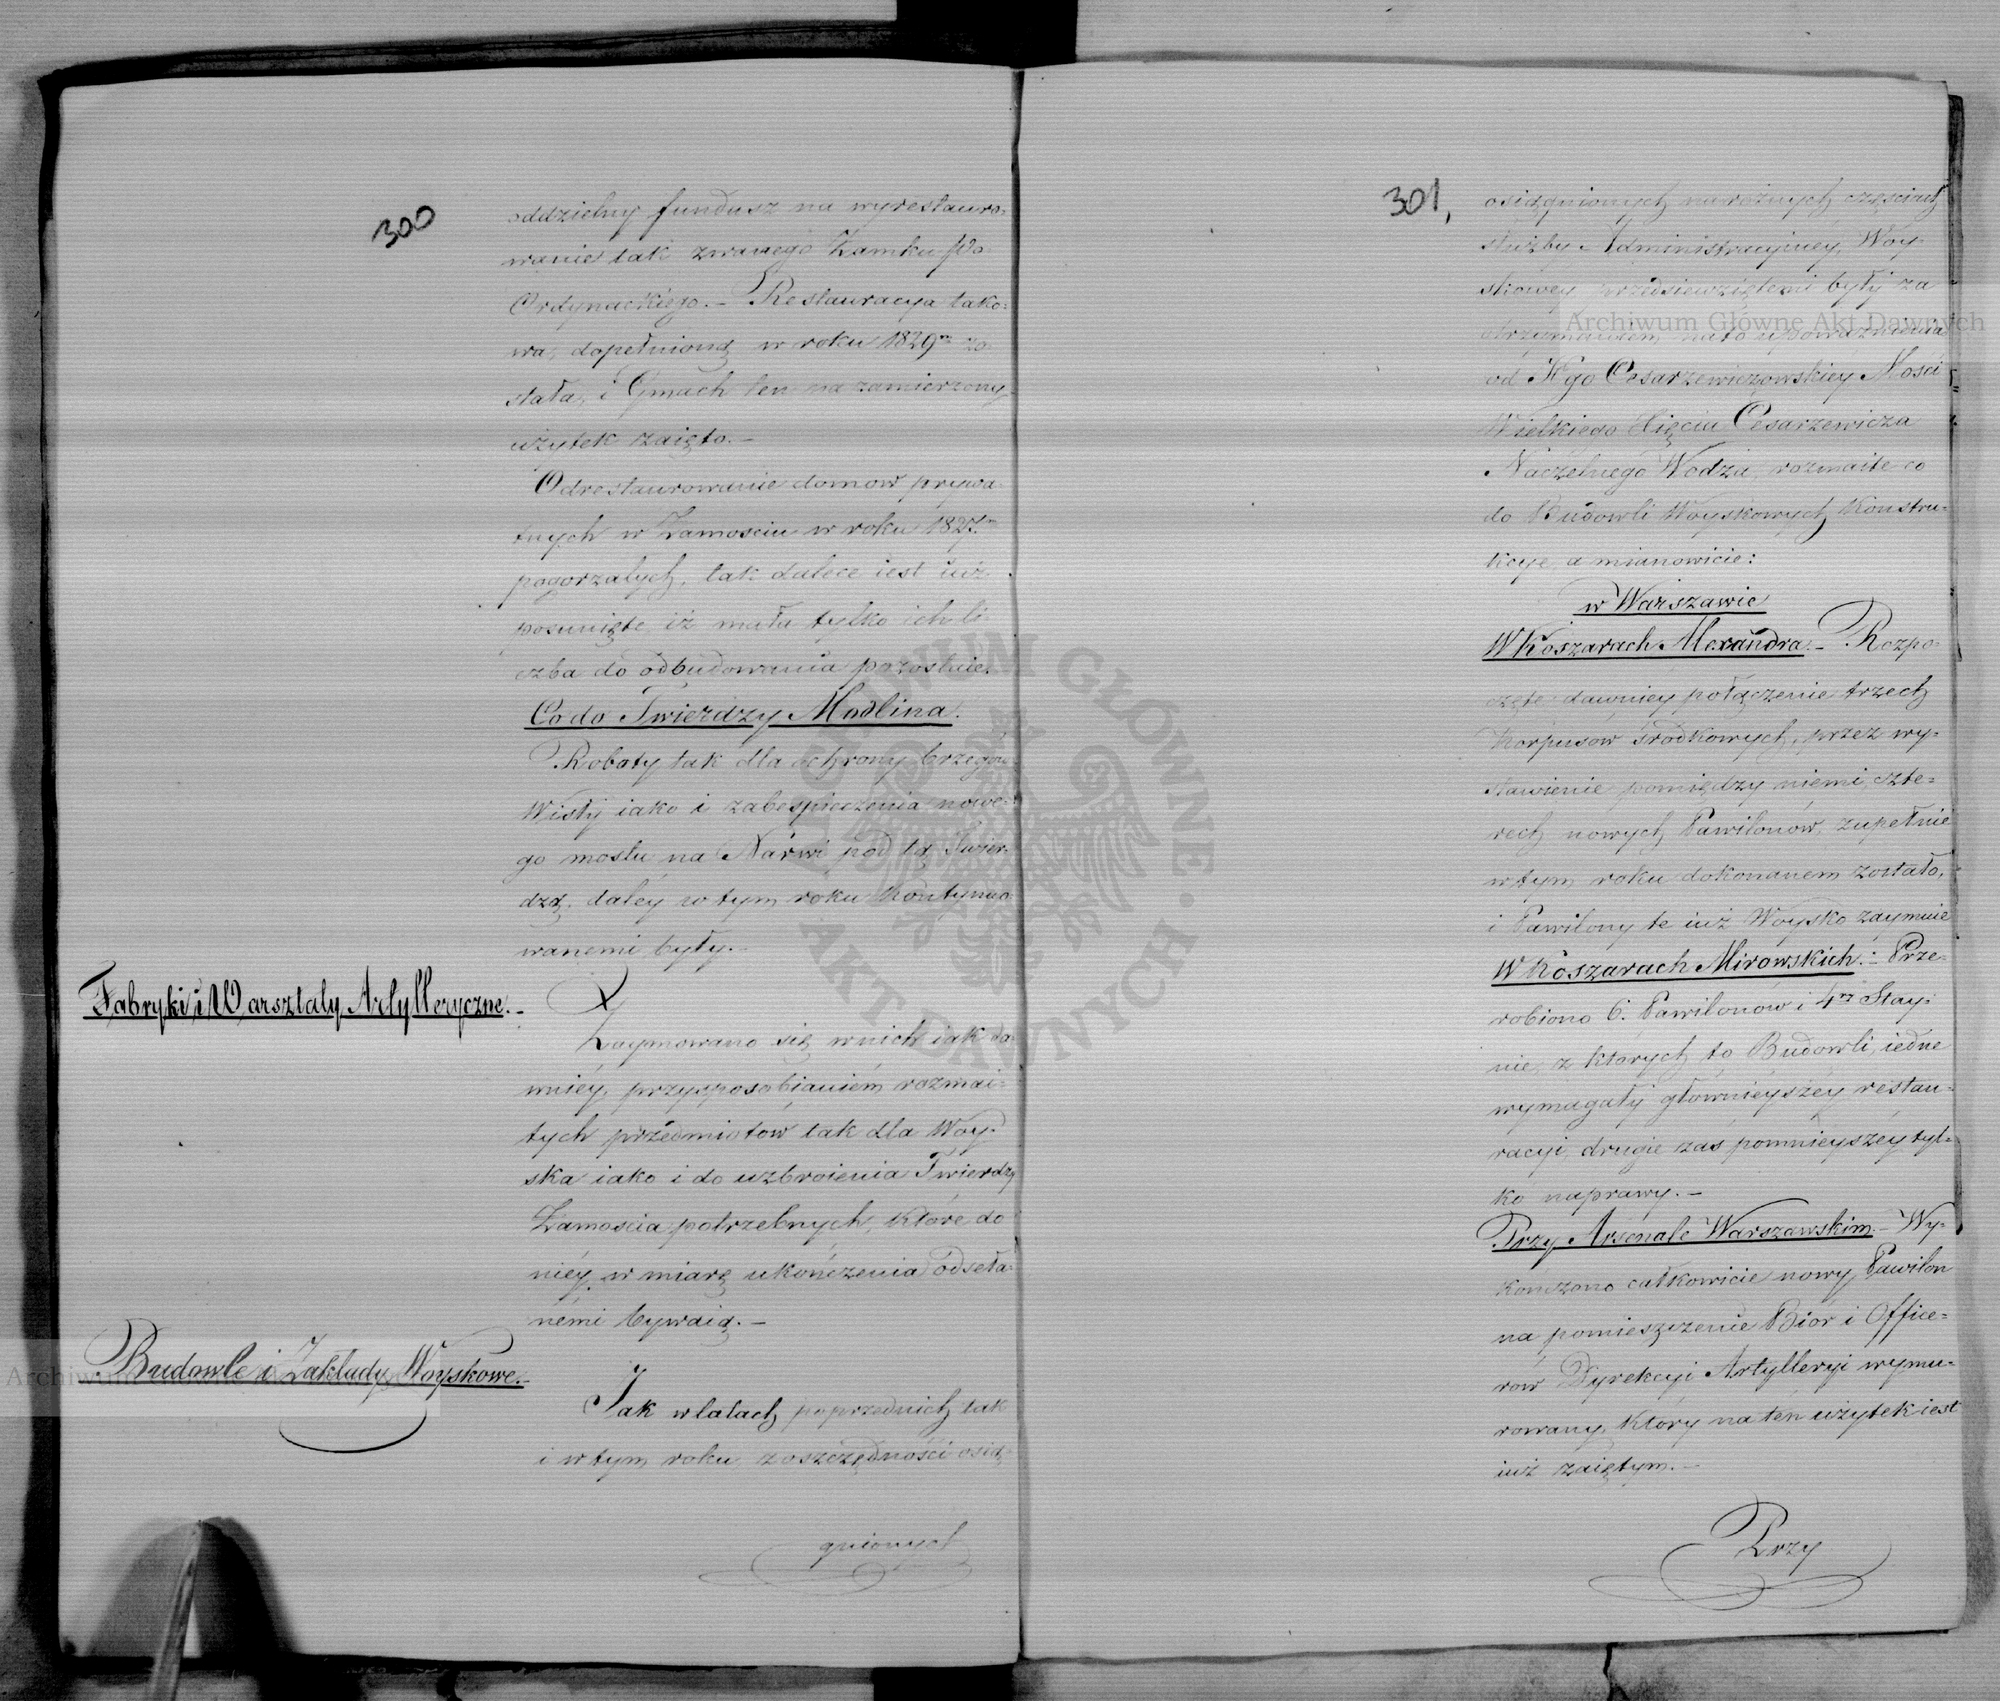 300
oddzielny fundusz na wyrestauro-
wanie tak zwanego Zamku po
Ordynackiego. – Restauracya tako-
wa, dopełnioną w roku 1829m zo-
stała, i Gmach ten na zamierzony
użytek zaięto. –
Odrestaurowanie domow prywa-
tnych w Zamosciu w roku 1827m
pogorzałych, tak dalece iest iuż
posunięte, iż mała tylko ich li-
czba do odbudowania pozostaie.
Co do Twierdzy Modlina.
Roboty tak dla ochrony brzegów
Wisły iako i zabespieczenia nowe-
go mostu na Narwi pod tą Twier-
dzą, daléy w tym roku kontynuo-
wanemi były. –
Fabryki i Warsztaty Artylleryczne. –
Zaymowano się w nich iak da-
wniéy, przysposabianiém rozmai-
tych przedmiotów tak dla Woy-
ska iako i do uzbroienia Twierdzy
Zamościa potrzebnych, które do
niéy w miarę ukończenia odseła-
némi bywaią. –
Budowle i Zakłady Woyskowe. –
Jak w latach poprzednich tak
i w tym roku z oszczędności osią-
gnionych
301,
osiągnionych na rożnych częściach
służby Administracyiney, Woy-
skowey przedsiewziętemi były za
otrzymaniem na to upoważnienia
od Jgo Cesarzewiczowskiey Mości
Wielkiego Xięcia Cesarzewicza
Naczelnego Wodza, rozmaite co
do Budowli Woyskowych Konstru-
kcye, a mianowicie:
w Warszawie
W Koszarach Alexandra. – Rozpo-
częte dawniey połączenie trzech
Korpusow środkowych, przez wy-
stawienie pomiędzy niemi, czte-
rech nowych Pawilonów, zupełnie
w tym roku dokonanem zostało,
i Pawilony te iuż Woysko zaymuie
W Koszarach Mirowskich. – Prze-
robiono 6. Pawilonów i 4ry Stay-
nie, z ktorych to Budowli, iedne
wymagały główniéyszéy restau-
racyi, drugie zas pomnieyszéy tyl-
ko naprawy. –
Przy Arsenale Warszawskim. – Wy-
kończono całkowicie nowy Pawilon
na pomieszczenie Biór i Office-
row Dyrekcyi Artylleryi wymu-
rowany, który na ten użytek iest
iuż zaiętym. –
Przy
Archiwum Główne Akt Dawnych
ARCHIWUM GŁÓWNE · AKT DAWNYCH ·